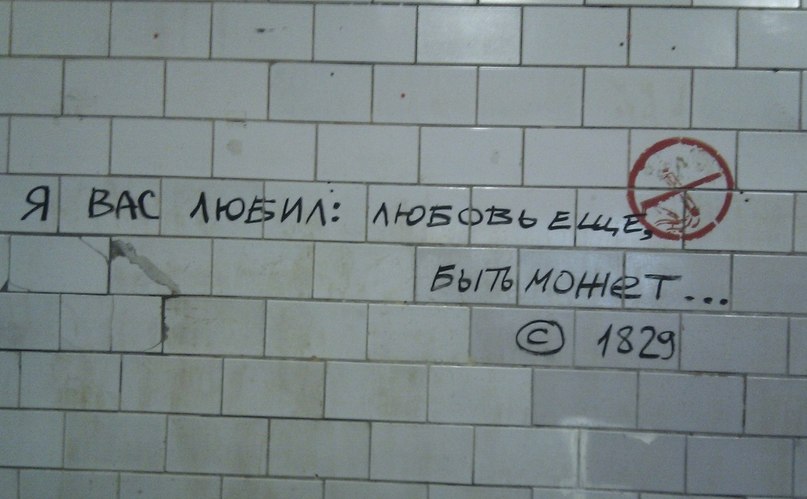 Я ВАС ЛЮБИЛ: ЛЮБОВЬ ЕЩЕ,
БЫТЬ МОЖЕТ...
© 1829